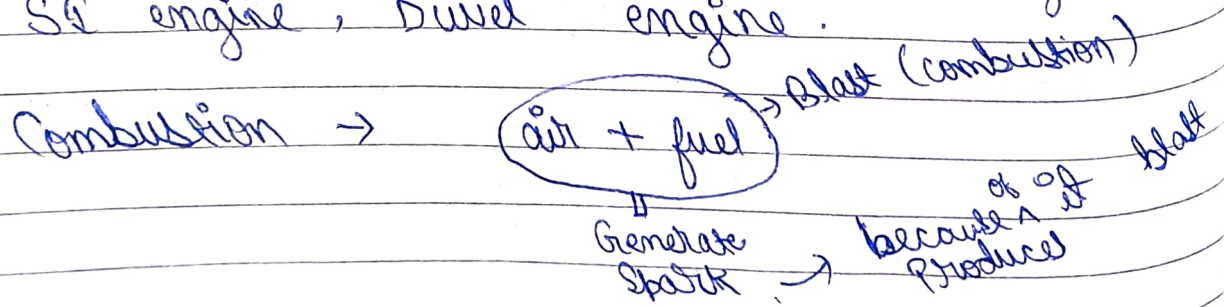 engine, engine.
Combustion → air + fuel → Blast (combustion)
Generate
Spark → because of it blast
produces